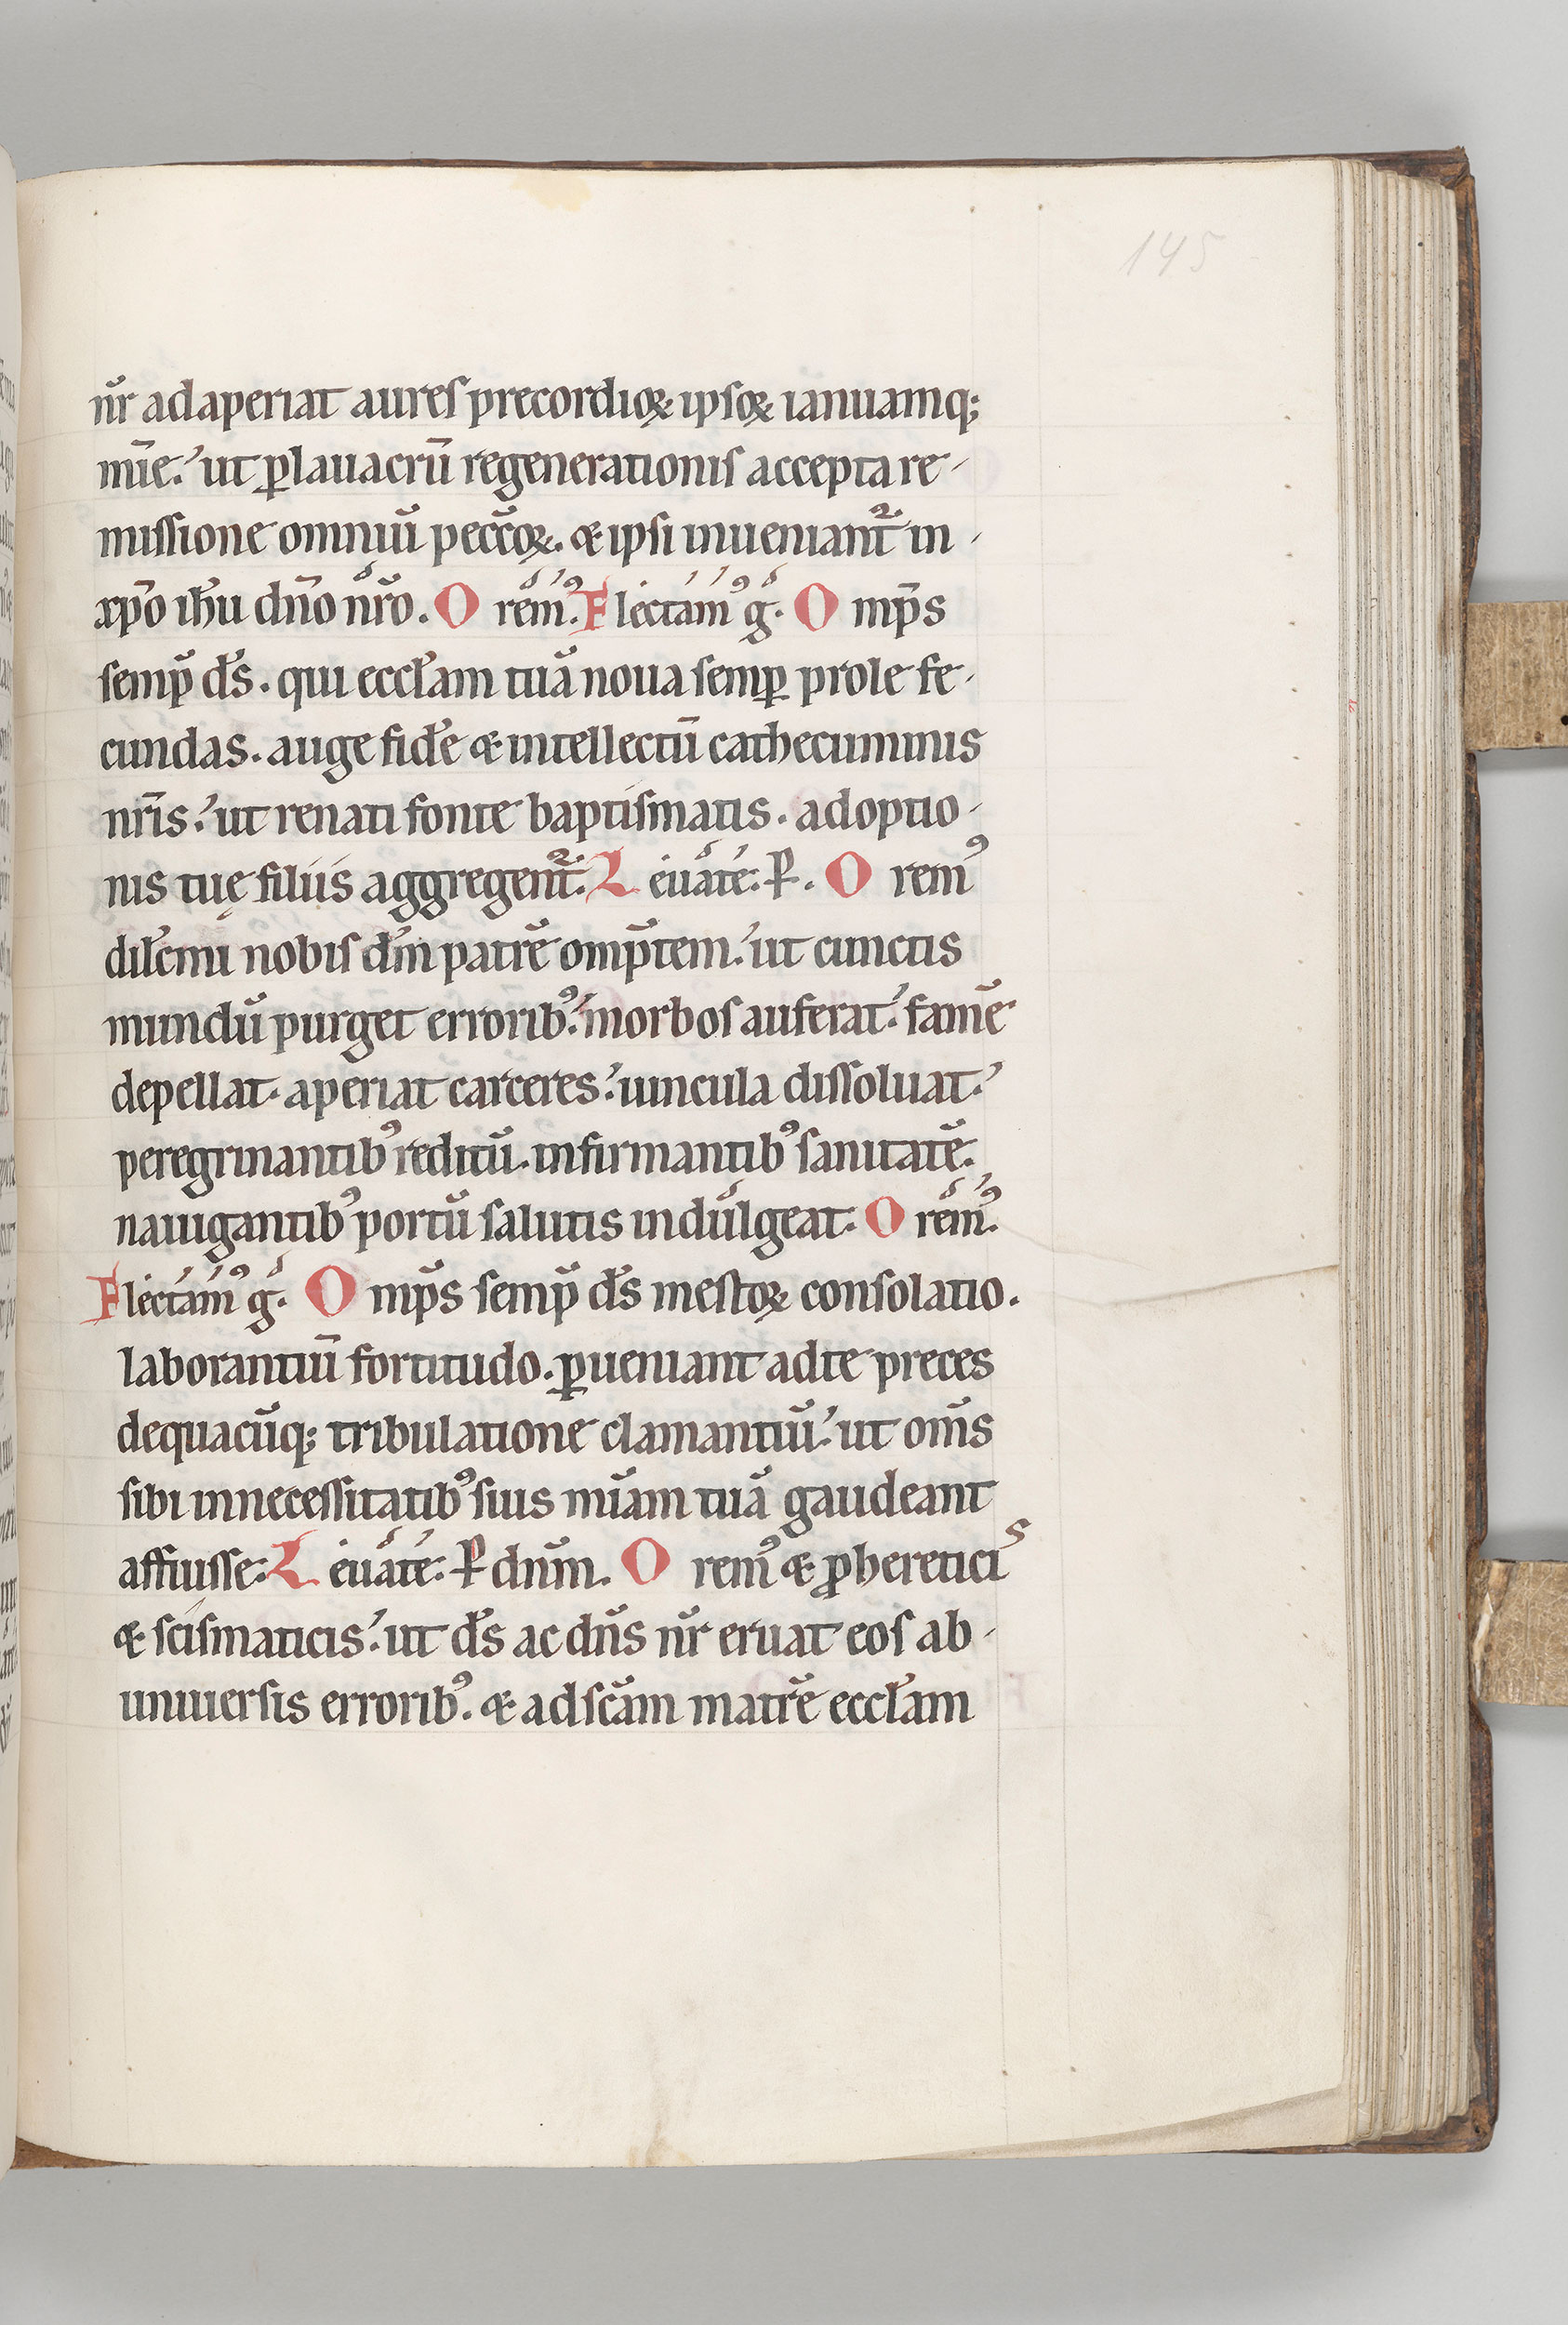 145
nr̄ adaperiat aures precordioꝝ ipsoꝝ ianuamq;
mīe. ut ꝑlauacrū regenerationis accepta re-
missione omniū pecc̄oꝝ. & ipsi inueniant̄ in-
xp̄o ih̄u dn̄o nr̄o. O rem̄ꝰ. Flectamꝰ g. O mp̄s
semp̄ ds̄. qui eccl̄am tuā noua semꝑ prole fe-
cundas. auge fidē & intellectū cathecuminis
nr̄is. ut renati fonte baptismatis. adoptio-
nis tuę filiis aggregent̄. Leuate. P̶. O remꝰ
dil̄cmi nobis dm̄ patrē omp̄tem. ut cunctis
mundū purget erroribꝰ. morbos auferat. famē
depellat. aperiat carceres. uincula dissoluat.
peregrinantibꝰ reditū. infirmantibꝰ sanitatē.
nauigantibꝰ portū salutis indulgeat. O rem̄ꝰ.
Flectamꝰ g. O mp̄s semp̄ ds̄ mestoꝝ consolatio.
laborantiū fortitudo. ꝑueniant adte preces
dequacūq; tribulatione clamantiū. ut om̄s
sibi innecessitatibꝰ suis mīam tuā gaudeant
affuisse. Leuate. P̶ dnm̄. O remꝰ & ꝓ hereticis
& scismaticis. ut ds̄ ac dn̄s nr̄ eruat eos ab-
uniuersis erroribꝰ. & ad sc̄am matrē eccl̄am